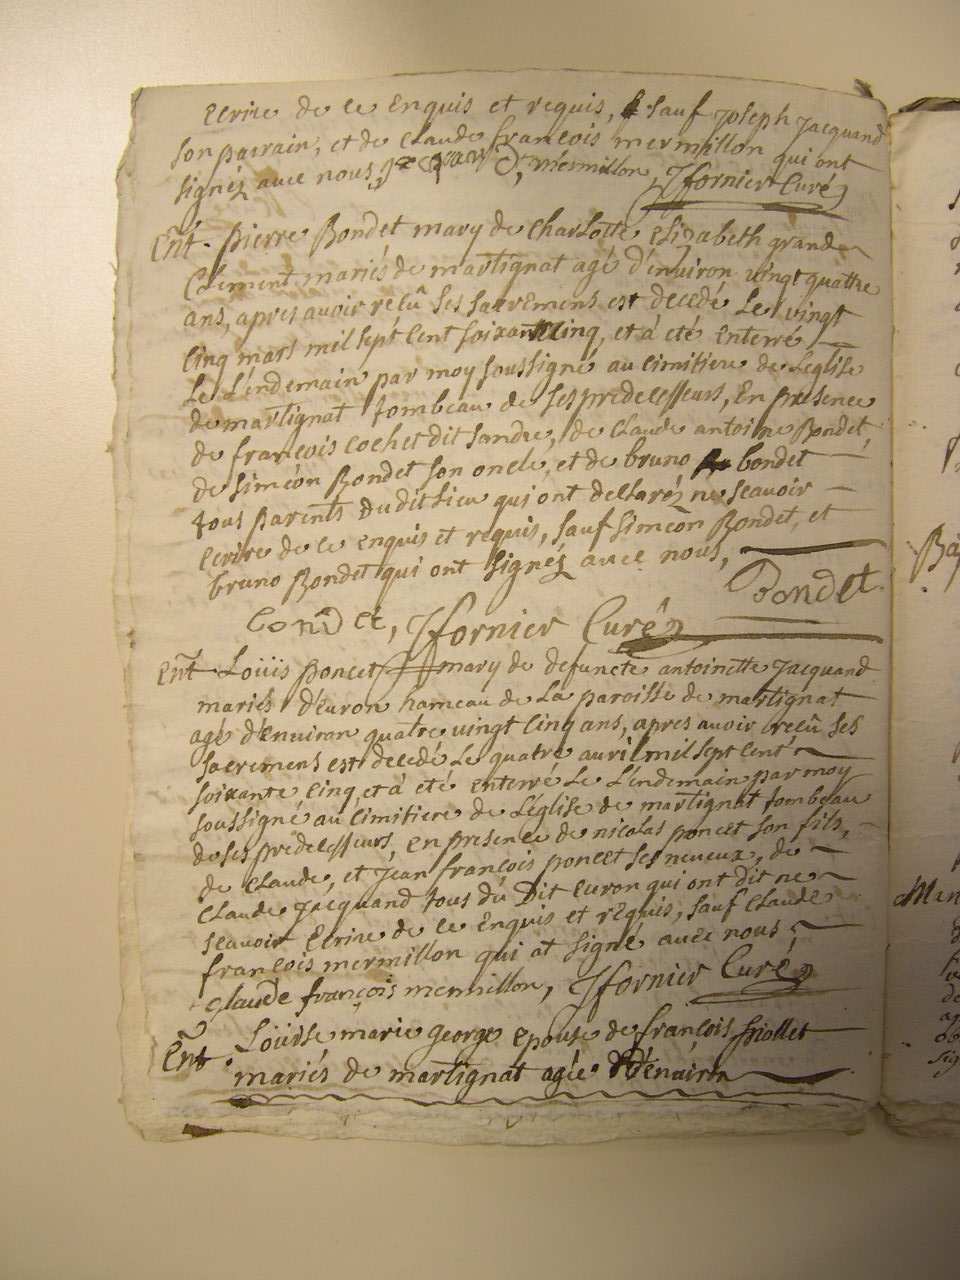 Ecrire de ce Enquis et requis, sauf joseph jacquand
son parrain, et de claude françois mermillon qui ont
signéz avec nous, mermillon, Jfornier Curé
Ent. pierre Bondet mary de CharLotte elizabeth grand
Clement mariés de martignat agé d'environ vingt quattre
ans, apres avoir recû ses sacremens est decedé Le vingt
cinq mars mil sept cent soixante cinq, et à eté enterré
Le L'endemain par moy soussigné au cimitiere de L'eglise
de martignat tombeau de ses predecesseurs, En presence
de françois cochet dit sandre, de claude antoine Bondet,
de simeón Bondet son oncle, et de bruno bondet
tous parents du dit Lieu qui ont declaréz ne scavoir
ecrire de ce enquis et requis, sauf simeón Bondet, et
bruno Bondet qui ont signéz avec nous,
Bondet
Bondet, Jfornier Curé
Ent Loüis poncet mary de defuncte antoinette Jacquand
mariés d'Evron hameau de La paroisse de martignat
agé d'environ quatre vingt cinq ans, apres avoir recû ses
sacremens est decedé Le quatre avril mil sept cent
soixante cinq, et à eté enterré Le L'endemain par moy
soussigné au cimitiere de L'église de martignat tombeau
de ses predecesseurs, en presence de nicolas poncet son fils,
de claude, et jean françois poncet ses neveux, de
claude jacquand tous du Dit evron qui ont dit ne
scavoir Ecrire de ce enquis et requis, sauf claude
françois mermillon qui at signé avec nous,
claude françois mermillon, Jfornier Curé
Ent. Loüise marie george epouse de françois friollet
mariés de martignat agée d'environ